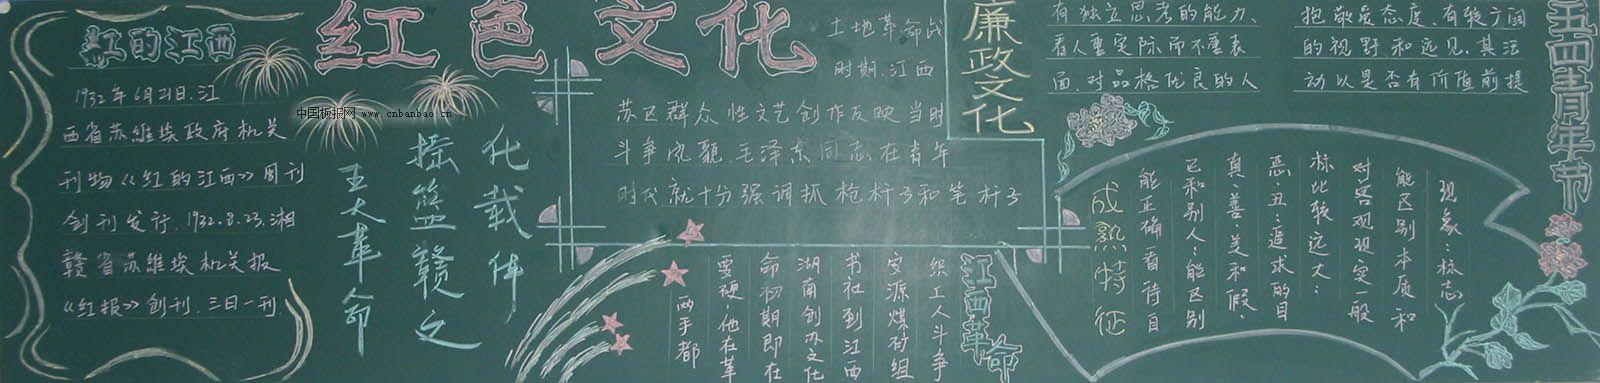 红的江西
1932年6月21日.江
西省苏维埃政府机关
刊物《红的江西》周刊
创刊发行.1932.8.23.湘
赣省苏维埃机关报
《红报》创刊.三日一刊
中国板报网
www.cnbanbao.cn
红色文化
化载体
摇篮赣之
五大革命
土地革命战
时期.江西
苏区群众性文艺创作反映当时
斗争风貌.毛泽东同志在青年
时代就十分强调抓枪杆子和笔杆子
两手都
要硬.他在革
命初期即在
湖南创办文化
书社到江西
安源煤矿组
织工人斗争
江西革命
廉政文化
有独立思考的能力、
看人重实际而不重表
面.对品格优良的人
抱敬爱态度、有较广阔
的视野和远见.其活
动以是否有价值前提
五四青年节
现象:标志
能区别本质和
对客观现实一般
标比较远大:
恶.丑:追求的目
真.善.美和假.
己和别人:能区别
能正确看待自
成熟特征